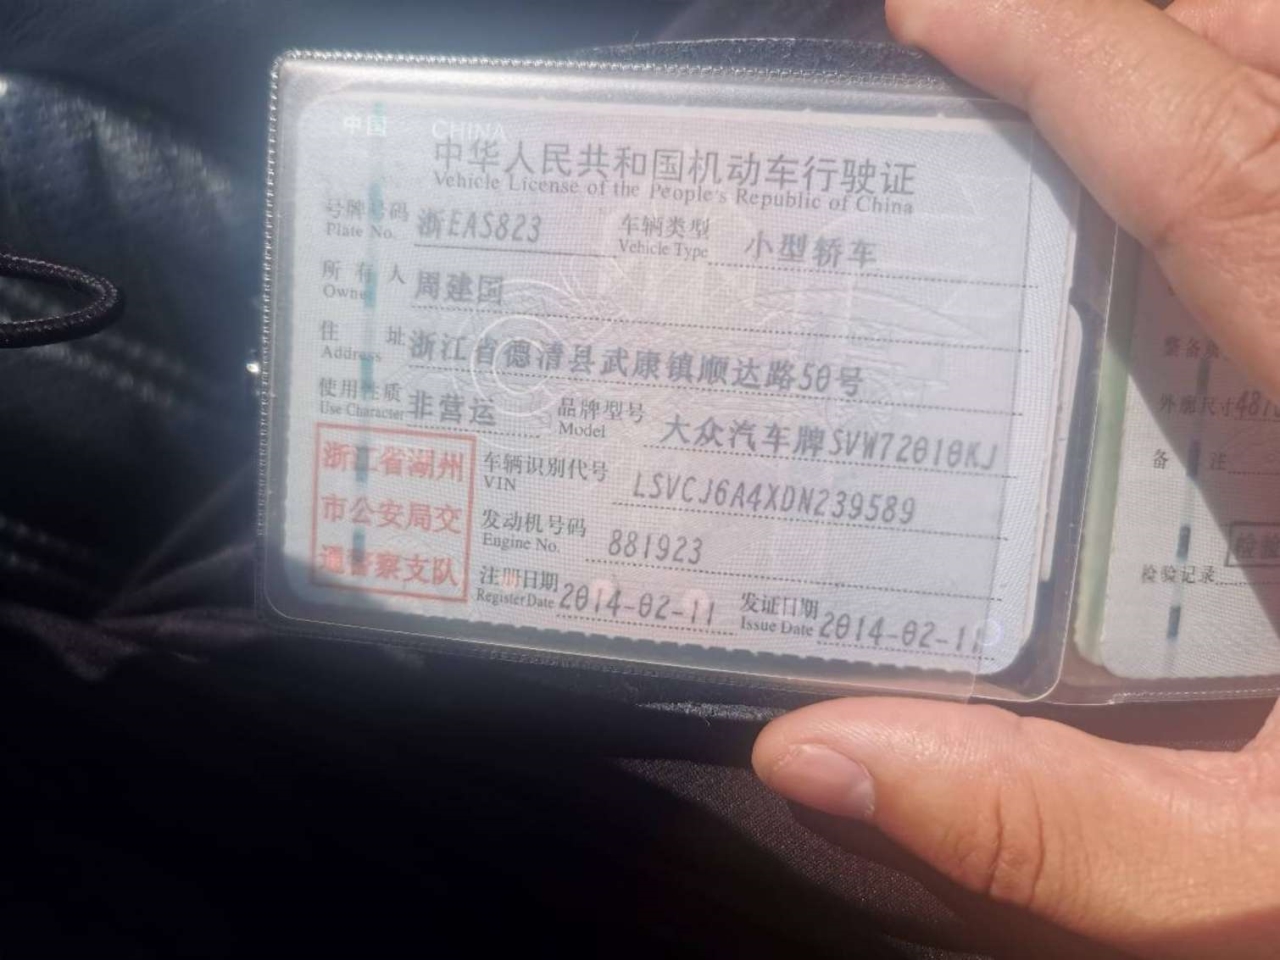 中国 CHINA
中华人民共和国机动车行驶证
Vehicle License of the People's Republic of China
号牌号码 浙EAS823 车辆类型 小型轿车
Plate No. Vehicle Type
所有人 周建国
Owner
住址 浙江省德清县武康镇顺达路50号
Address
使用性质 非营运 品牌型号 大众汽车牌SVW72010KJ
Use Character Model
浙江省湖州
市公安局交
通警察支队
车辆识别代号 LSVCJ6A4XDN239589
VIN
发动机号码 881923
Engine No.
注册日期 2014-02-11 发证日期 2014-02-11
Register Date Issue Date
外廓尺寸 481
备注
检验记录